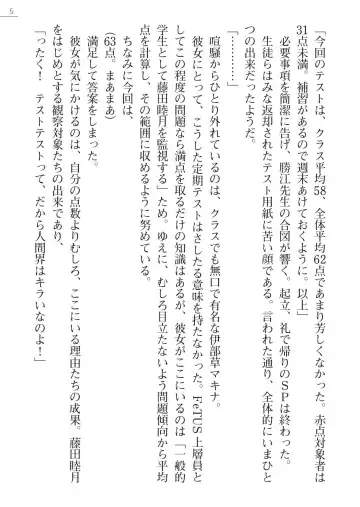 5
「今回のテストは、クラス平均58、全体平均62点であまり芳しくなかった。赤点対象者は
31点未満。補習があるので週末あけておくように。以上」
必要事項を簡潔に告げ、勝江先生の合図が響く。起立、礼で帰りのSPは終わった。
生徒らはみな返却されたテスト用紙に苦い顔である。言われた通り、全体的にいまひと
つの出来だったようだ。
「………………」
喧騒からひとり外れているのは、クラスでも無口で有名な伊部草マキナ。
彼女にとって、こうした定期テストはさしたる意味を持たなかった。FeTUS上層員と
してこの程度の問題なら満点を取るだけの知識はあるが、彼女がここにいるのは「一般的
学生として藤田睦月を監視する」ため。ゆえに、むしろ目立たないよう問題傾向から平均
点を計算し、その範囲に収めるように努めている。
ちなみに今回は、
（63点。まあまあ）
満足して答案をしまった。
彼女が気にかけるのは、自分の点数よりむしろ、ここにいる理由たちの成果。藤田睦月
をはじめとする観察対象たちの出来であり、
「ったく！　テストテストって、だから人間界はキライなのよ！」